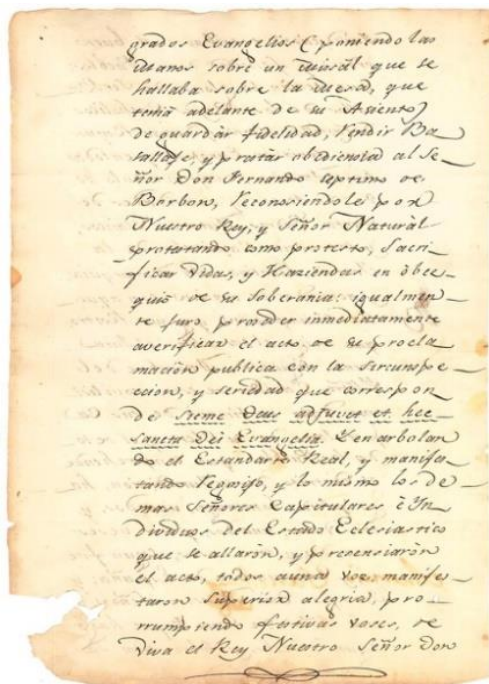 grados Evangelios (poniendo las
manos sobre un Misál que se
hallaba sobre la mesa, que
tenia adelante de su Asiento)
de guardár fidelidad, rendir Ba
sallaje, y prestár obediencia al Se_
ñor Don Fernando septimo de
Borbon, reconosiendole por
Nuestro Rey, y Señor Naturál
protestando como protesto, Sacri_
ficar Vidas, y Haziendas en óbce_
quio de su Soberania: igualmen_
te juro, proceder inmediatamente
averificar el acto de su procla_
macion publica con la Sircunspe_
ccion, y seriedad que correspon_
de sieme Deus adjuvet et hec
sancta Dei Evangelia. Y en arbolan
do el Estandarte Real, y manifes_
tando regosijo, y lo mismo los de_
mas Señores Capitulares é Yn
dividuos del Estado Eclesiastico
que se allarón, y presensiarón
el acto, todos auna voz, manifes_
taron Superior alegria, pro_
rrumpiendo festivas voses, de
Viva el Rey Nuestro Señor Don